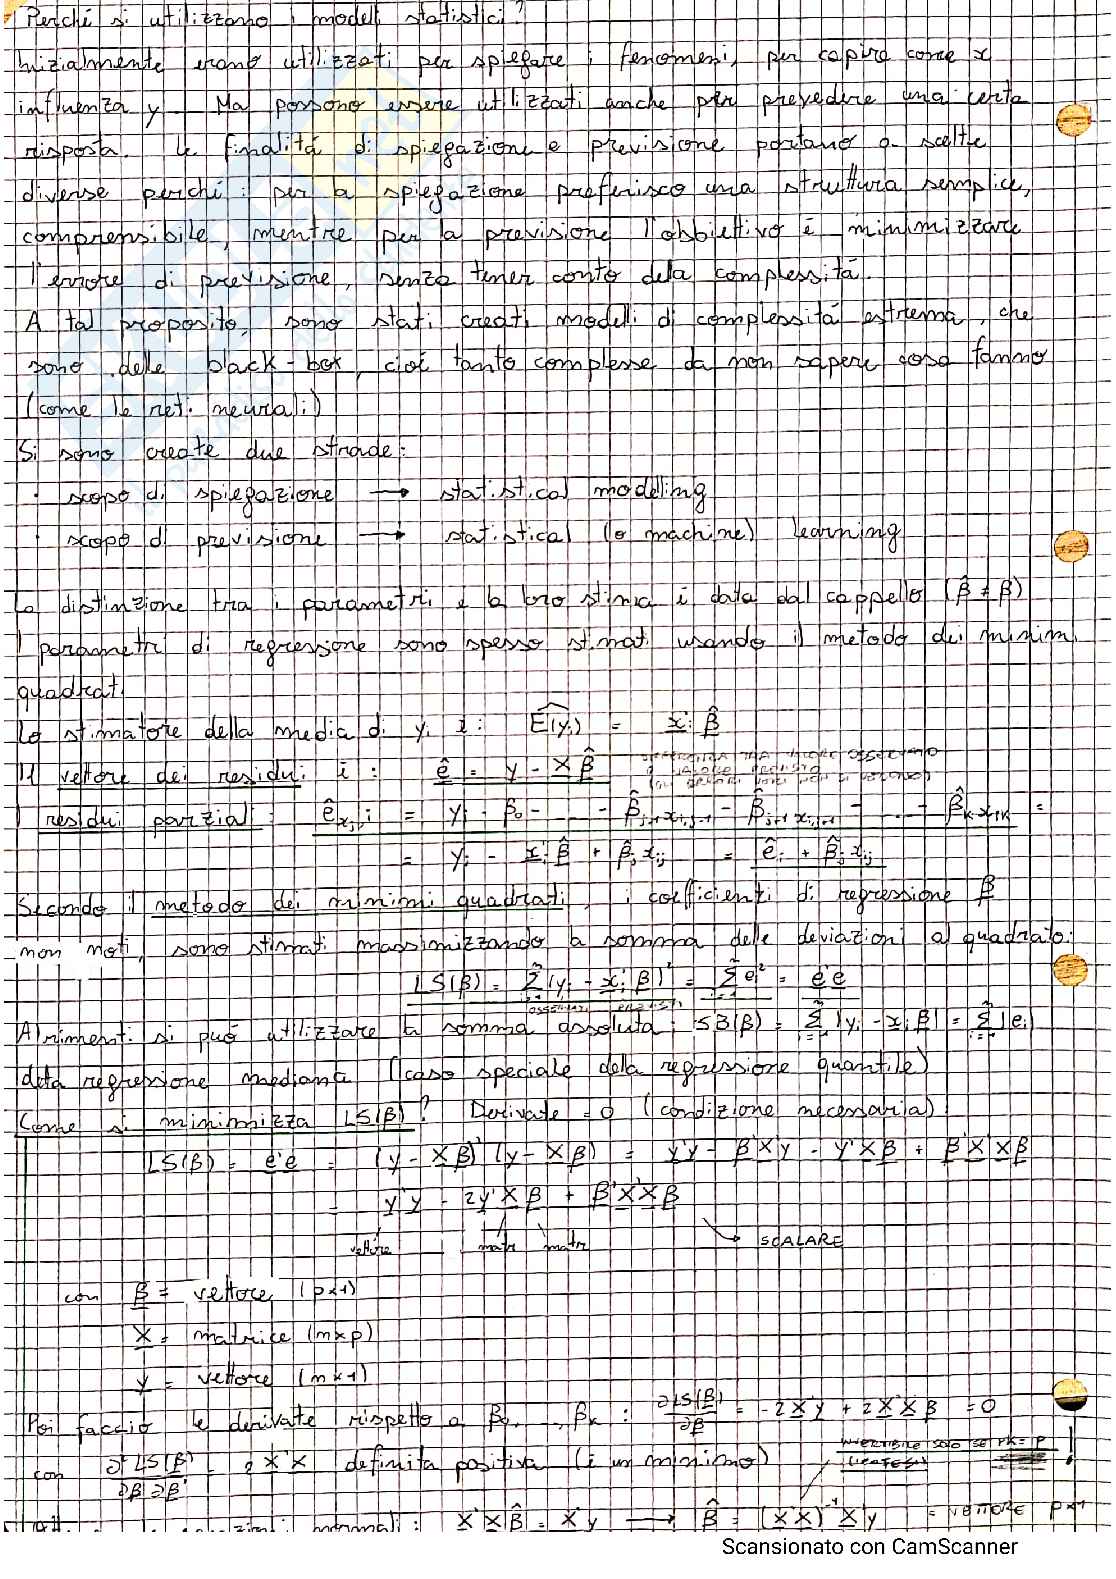 Perché si utilizzano i modelli statistici?
Inizialmente erano utilizzati per spiegare i fenomeni, per capire come x
influenza y. Ma possono essere utilizzati anche per prevedere una certa
risposta. Le finalitá di spiegazione e previsione portano a scelte
diverse perché: per la spiegazione preferisco una struttura semplice,
comprensibile, mentre per la previsione l'obbiettivo é minimizzare
l'errore di previsione, senza tener conto dela complessitá.
A tal proposito, sono stati creati modelli di complessitá estrema, che
sono delle black-box, cioé tanto complesse da non sapere cosa fanno
(come le reti neurali)
Si sono create due strade:
· scopo di spiegazione → statistical modeling
· scopo di previsione → statistical (o machine) learning
La distinzione tra i parametri e la loro stima é data dal cappello (β̂ ≠ β)
I parametri di regressione sono spesso stimati usando il metodo dei minimi
quadrati.
Lo stimatore della media di yi é: Ê(yi) = xi' β̂
Il vettore dei residui é: ê = y - Xβ̂ DIFFERENZA TRA VALORE OSSERVATO
E VALORE PREVISTO
I residui parziali: ê xj,i = yi - β̂0 - ... - β̂j-1 xi,j-1 - β̂j+1 xi,j+1 - ... - β̂k xik =
= yi - xi'β̂ + β̂j xij = êi + β̂j xij
Secondo il metodo dei minimi quadrati, i coefficienti di regressione β
non noti, sono stimati massimizzando la somma delle deviazioni al quadrato:
LS(β) = Σ(yi - xi'β)² = Σ ei² = e'e
OSSERVATI PREVISTI
Altrimenti si può utilizzare la somma assoluta: SB(β) = Σ|yi - xi'β| = Σ|ei|
detta regressione mediana (caso speciale della regressione quantile)
Come si minimizza LS(β)? Derivate = 0 (condizione necessaria)
LS(β) = e'e = (y - Xβ)'(y - Xβ) = y'y - β'X'y - y'Xβ + β'X'Xβ
= y'y - 2y'Xβ + β'X'Xβ
vettore matr matr → SCALARE
con β = vettore (p×1)
X = matrice (n×p)
y = vettore (n×1)
Poi faccio le derivate rispetto a β0, ..., βk: ∂LS(β)/∂β = -2X'y + 2X'Xβ = 0
INVERTIBILE SOLO SE rk = p !
(IPOTESI)
con ∂²LS(β)/∂β∂β' = 2X'X definita positiva (é un minimo)
normali: X'Xβ̂ = X'y → β̂ = (X'X)⁻¹X'y = VETTORE p×1
Scansionato con CamScanner